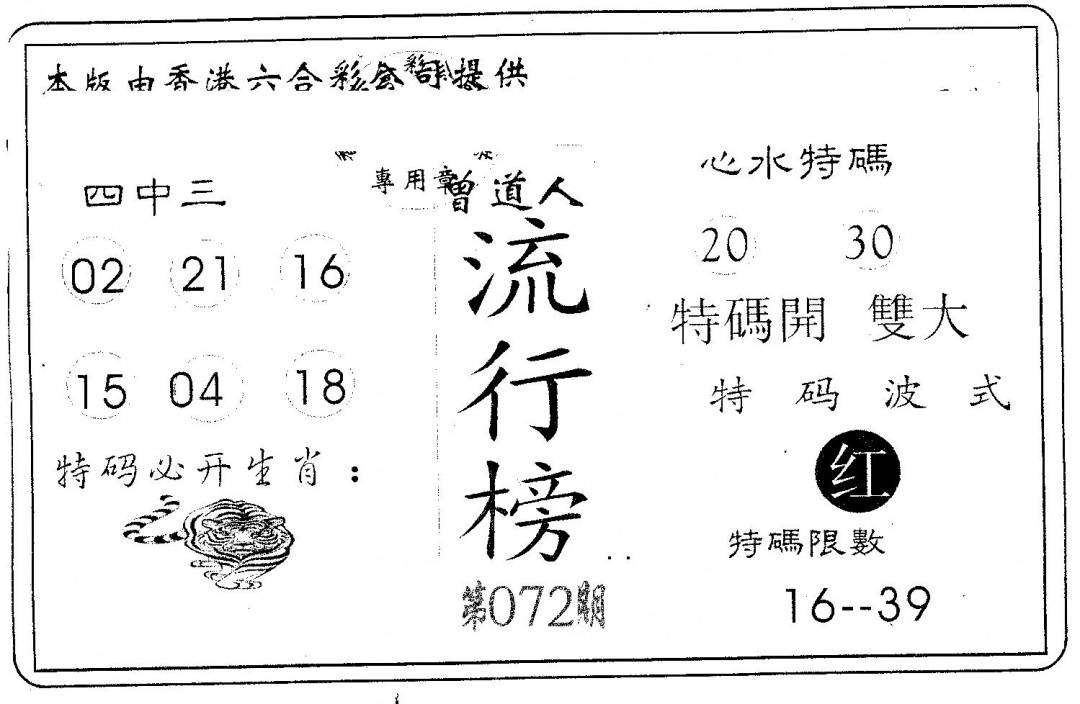 本版由香港六合彩公司提供
四中三
02 21 16
15 04 18
特码必开生肖：
專用章
曾道人
流行榜
第072期
心水特碼
20 30
特碼開 雙大
特码波式
红
特碼限數
16--39